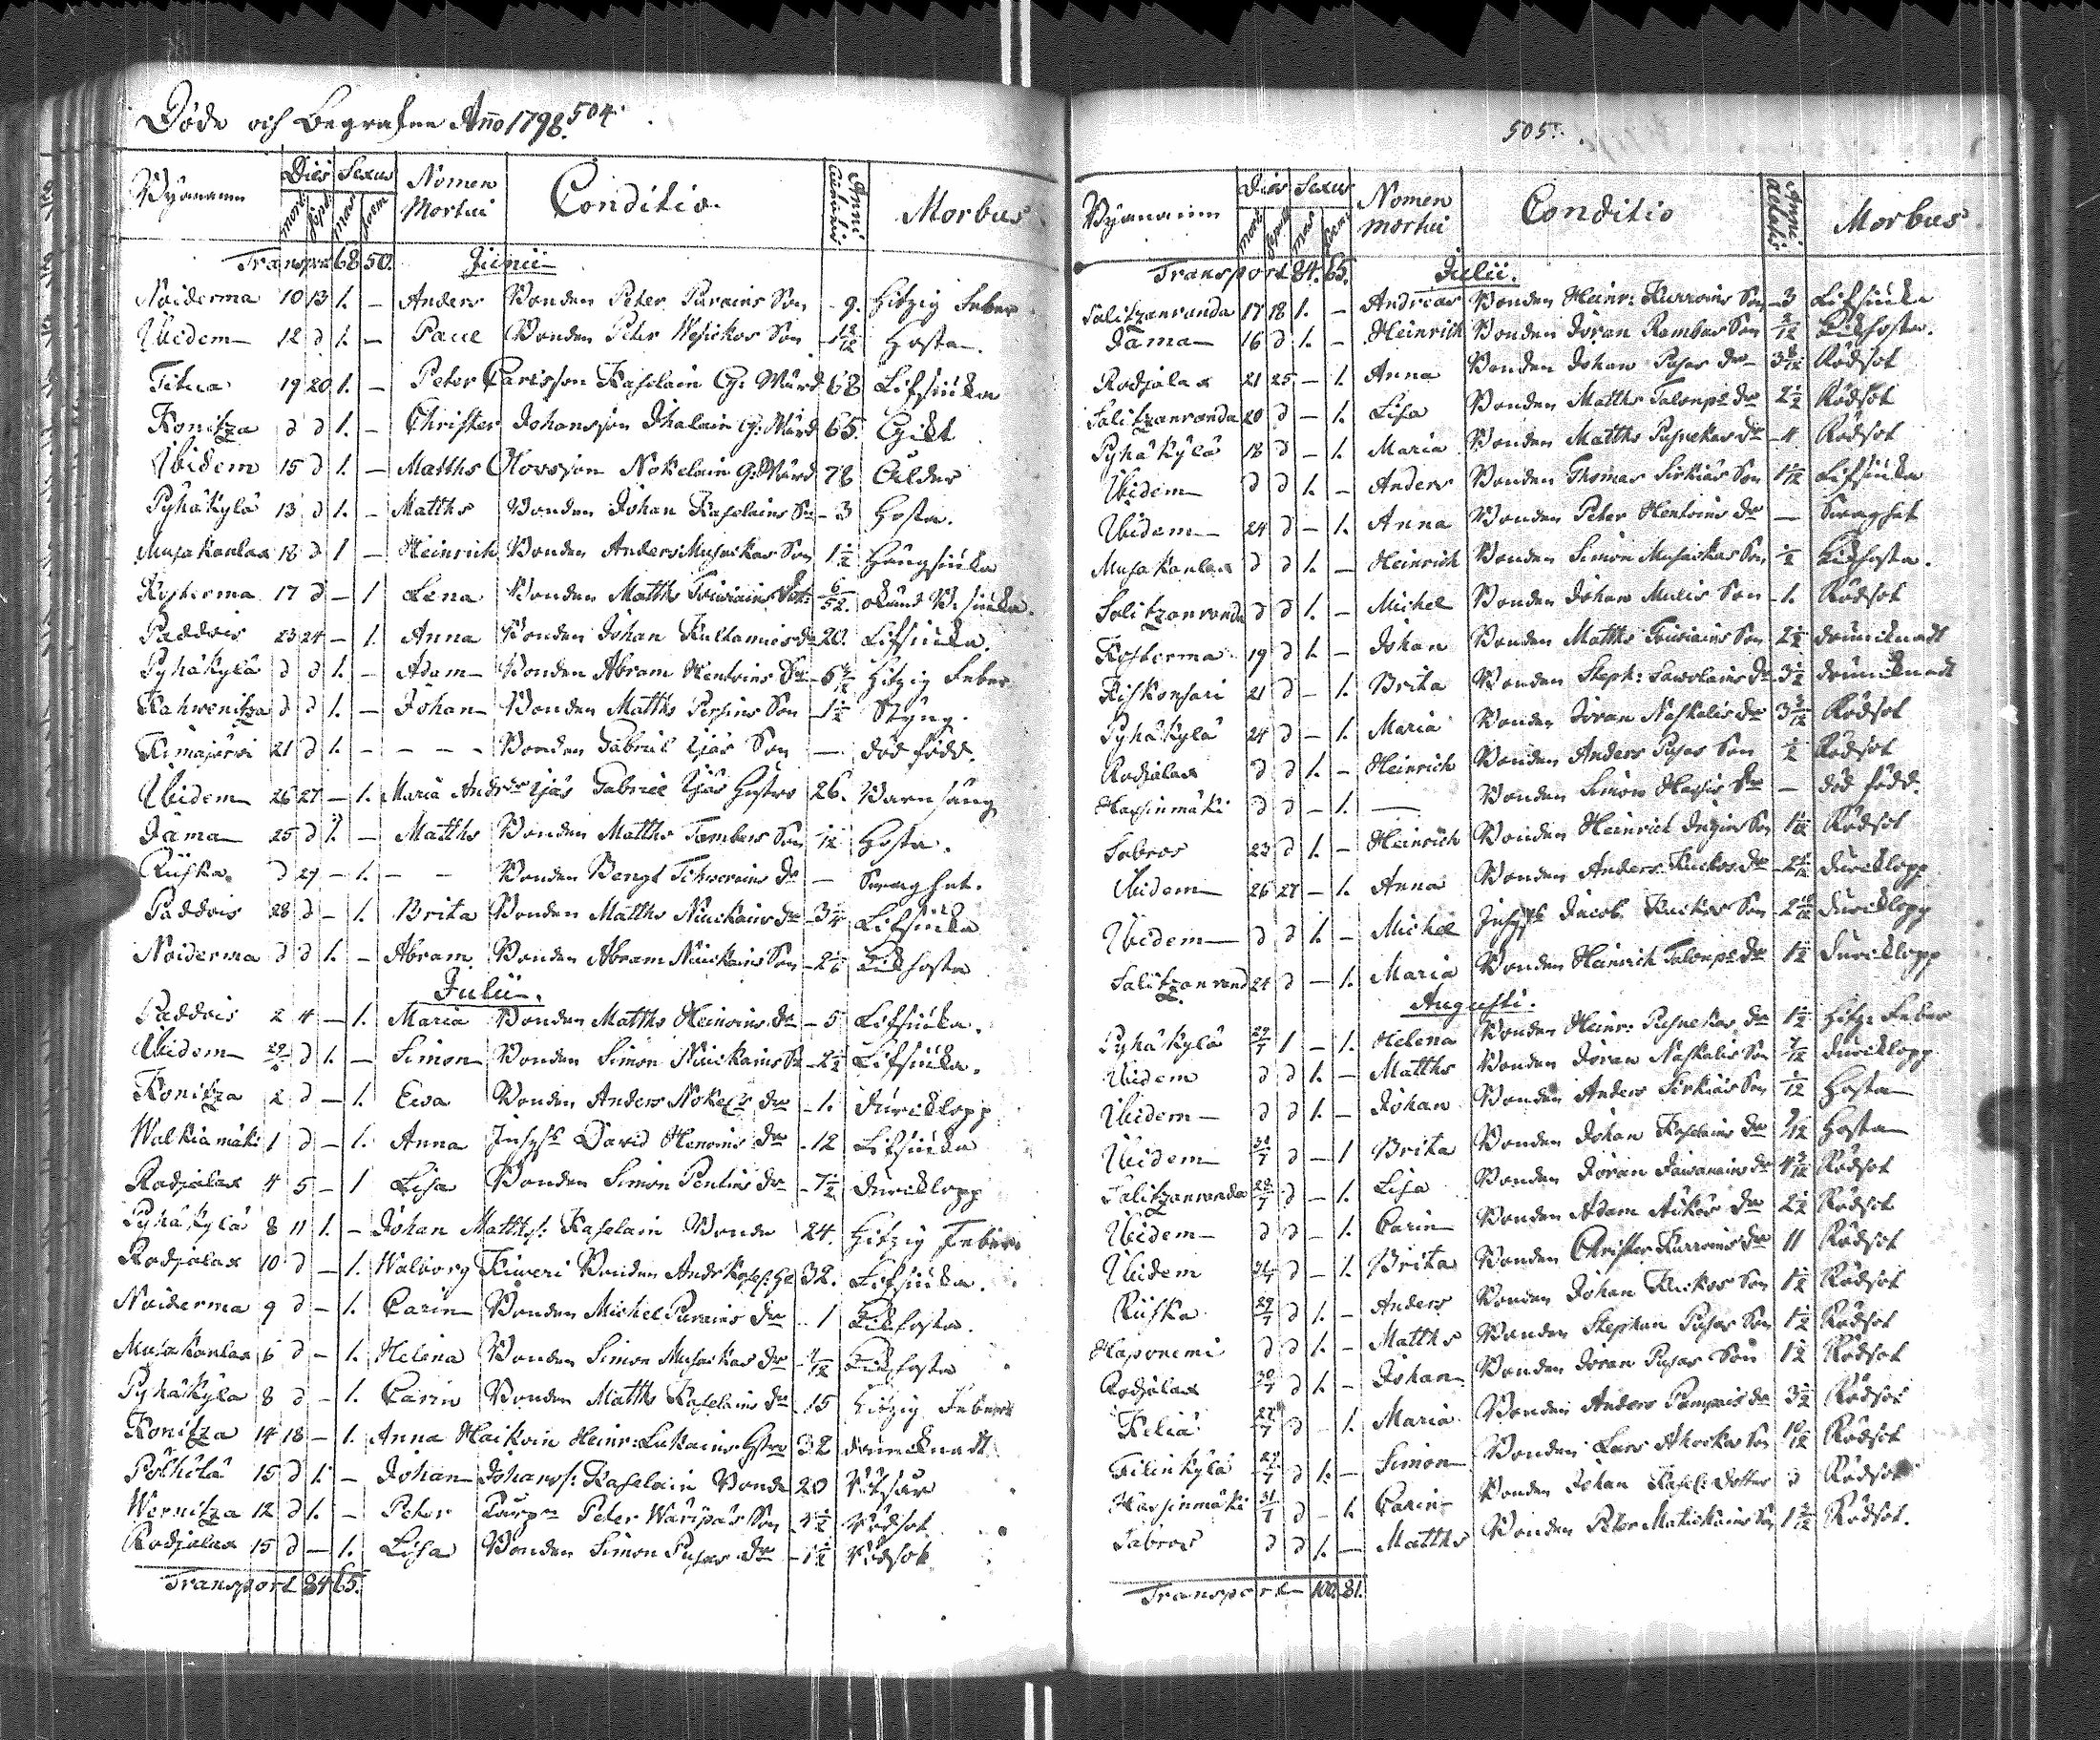 Döde och Begrafne Anno 1798. 504.
Byanamn Dies Sexus Nomen Mortui Conditio. Anni Aetatis Morbus
mort. sepul. mas foem
Transport 68 50. Junii
Noiderma 10 13 1. — Anders Bonden Peter Purains Son 9. Hitzig Feber
Ibidem 12 d 1. — Paul Bonden Peter Son Hosta.
Titua 19 20 1. — Peter Carlsson Kaselain G: Wärd 68 Lifsiuka
Konitza d d 1. — Christer Johansson Ihalain G: Wärd 65. Gikt
Ibidem 15 d 1. — Matths Olovsson Nokelain G: Wärd 78 Ålder
Pyhäkylä 13 d 1. — Matths Bonden Johan Kaselains Son 3 Hosta.
Musakanlax 18 d 1 — Heinrich Bonden Anders Musackas Son 1 1/2
Kosterma 17 d — 1 Lena Bonden Matths 6/52. okänd B. siuka.
Paddois 23 24 — 1. Anna Bonden Johan Kultamies dr 20. Lifsiuka.
Pyhäkylä d d 1. — Adam Bonden Abram Hentoins Son Hitzig Feber
Kahwenitza d d 1. — Johan Bonden Matths Persins Son 1 1/2 Styng.
Kimajärvi 21 d 1. — — — Bonden Gabriel Ijäs Son — död född.
Ibidem 26 27 — 1. Maria Andrsdr Ijäs Gabriel Ijäs Hustro 26. Barnsäng
Jäma 25 d 1. — Matths Bonden Matths Tambers Son 1/12 Hosta.
Riiska d 27 — 1. — — Bonden Bengt dr — Swaghet.
Paddois 28 d — 1. Brita Bonden Matths Niuckains dr 3 1/4 Lifsiuka
Noiderma d d 1. — Abram Bonden Abram Niuckains Son Kikhosta
Julii.
Paddois 2 4 — 1. Maria Bonden Matths Heinoins dr 5 Lifsiuka.
Ibidem d 1. — Simon Bonden Simon Niuckains Son 2 1/2 Lifsiuka.
Konitza 2 d — 1. Ewa Bonden Anders Nokels dr 1. Durcklopp
Walkiamäki 1 d — 1. Anna Inhys David Henoins dr 12 Lifsiuka
Radjalax 4 5 — 1 Lisa Bonden Simon Pentins dr 7 1/2 Durcklopp
Pyhäkylä 8 11 1. — Johan Matths: Kaselain Bonde 24. Hitzig Feber
Radjalax 10 d — 1. Walborg Kiweri Bonden Andr 32. Lifsiuka.
Noiderma 9 d — 1. Carin Bonden Michel Purains dr 1 Kikhosta.
Musakanlax 6 d — 1. Helena Bonden Simon Musackas dr Kikhosta
Pyhäkylä 8 d — 1. Carin Bonden Matths Kaselains dr 15 Hitzig Feber
Konitza 14 18 — 1. Anna Haikoin Heinr: Lukains Hstro 32 drunknadt
Pölhölä 15 d 1. — Johan Johans: Kaselain Bonde 20
Wernitza 12 d 1. — Peter Torpn Peter Waripäs Son 4 1/2 Rödsot
Radjalax 15 d — 1. Lisa Bonden Simon Pusas dr 1 1/2 Rödsot
Transport 84 65.
505.
Byanamn Dies Sexus Nomen mortui Conditio Anni Aetatis Morbus
mort sepul mas foem
Transport 84. 65. Julii.
Salitzanranda 17 18 1. — Andreas Bonden Heinr: Kurroins Son 3 Lifsiuka
Jäma 16 d 1. — Heinrich Bonden Jöran Rambas Son Kikhosta.
Radjalax 21 25 — 1. Anna Bonden Johan Pusas dr Rödsot
Salitzanranda 20 d — 1. Lisa Bonden Matths Talonps dr 2 1/2 Rödsot
Pyhäkylä 18 d — 1. Maria Bonden Matths Pusnekas dr 4 Rödsot
Ibidem d d 1. — Anders Bonden Thomas Sirkiäs Son Lifsiuka
Ibidem 24 d — 1. Anna Bonden Peter Hentoins dr — Swaghet
Musakanlax d d 1. — Heinrich Bonden Simon Musackas Son 1/2 Kikhosta.
Salitzanranda d d 1. — Michel Bonden Johan Mulis Son 1. Rödsot
Kosterma 19 d 1. — Johan Bonden Matths Son 2 1/2 drunknadt
Kiskonsari 21 d — 1. Brita Bonden Steph: Sawolains dr 3 1/2 drunknadt
Pyhäkylä 24 d — 1. Maria Bonden Jöran Naskalis dr Rödsot
Radjalax d d 1. — Heinrich Bonden Anders Pusas Son 1/2 Rödsot
Hassinmäki d d — 1. — Bonden Simon Hassis dr — död född.
Sabros 23 d 1. — Heinrich Bonden Heinrich Ingins Son Rödsot
Ibidem 26 27 — 1. Anna Bonden Anders Kuckos dr Durcklopp
Ibidem d d 1. — Michel Inhys Jacob Kuckos Son Durcklopp
Salitzanrand 24 d — 1. Maria Bonden Heinrich Talonps dr Durcklopp
Augusti.
Pyhäkylä 29/7 1 — 1. Helena Bonden Heinr: Pusnekas dr 1 1/2 Hitz: Feber
Ibidem d d 1. — Matths Bonden Jöran Naskalis Son Durcklopp
Ibidem d d 1. — Johan Bonden Anders Sirkiäs Son Hosta
Ibidem d — 1 Brita Bonden Johan Kaselains dr Hosta
Salitzanranda 28/7 d — 1. Lisa Bonden Jöran dr Rödsot
Ibidem d d — 1. Carin Bonden Adam dr 2 1/2 Rödsot
Ibidem d — 1. Brita Bonden Christer Kurroins dr 11 Rödsot
Riiska 29/7 d 1. — Anders Bonden Johan Kuckos Son 1 1/2 Rödsot
Haponemi d d 1. — Matths Bonden Stephan Pusas Son 1 1/2 Rödsot
Radjalax 30/7 d 1. — Johan Bonden Jöran Pusas Son 1 1/2 Rödsot
Keliä 27/7 d — 1. Maria Bonden Anders dr 3 1/2 Rödsot
Filinkylä 29/7 d 1. — Simon Bonden Lars Ahockas Son 10/12 Rödsot
Hassinmäki 31/7 d — 1. Carin Bonden Johan Kasel: Dotter Rödsot
Sabros d d 1. — Matths Bonden Peter Matickains Son Rödsot.
Transport 100. 81.